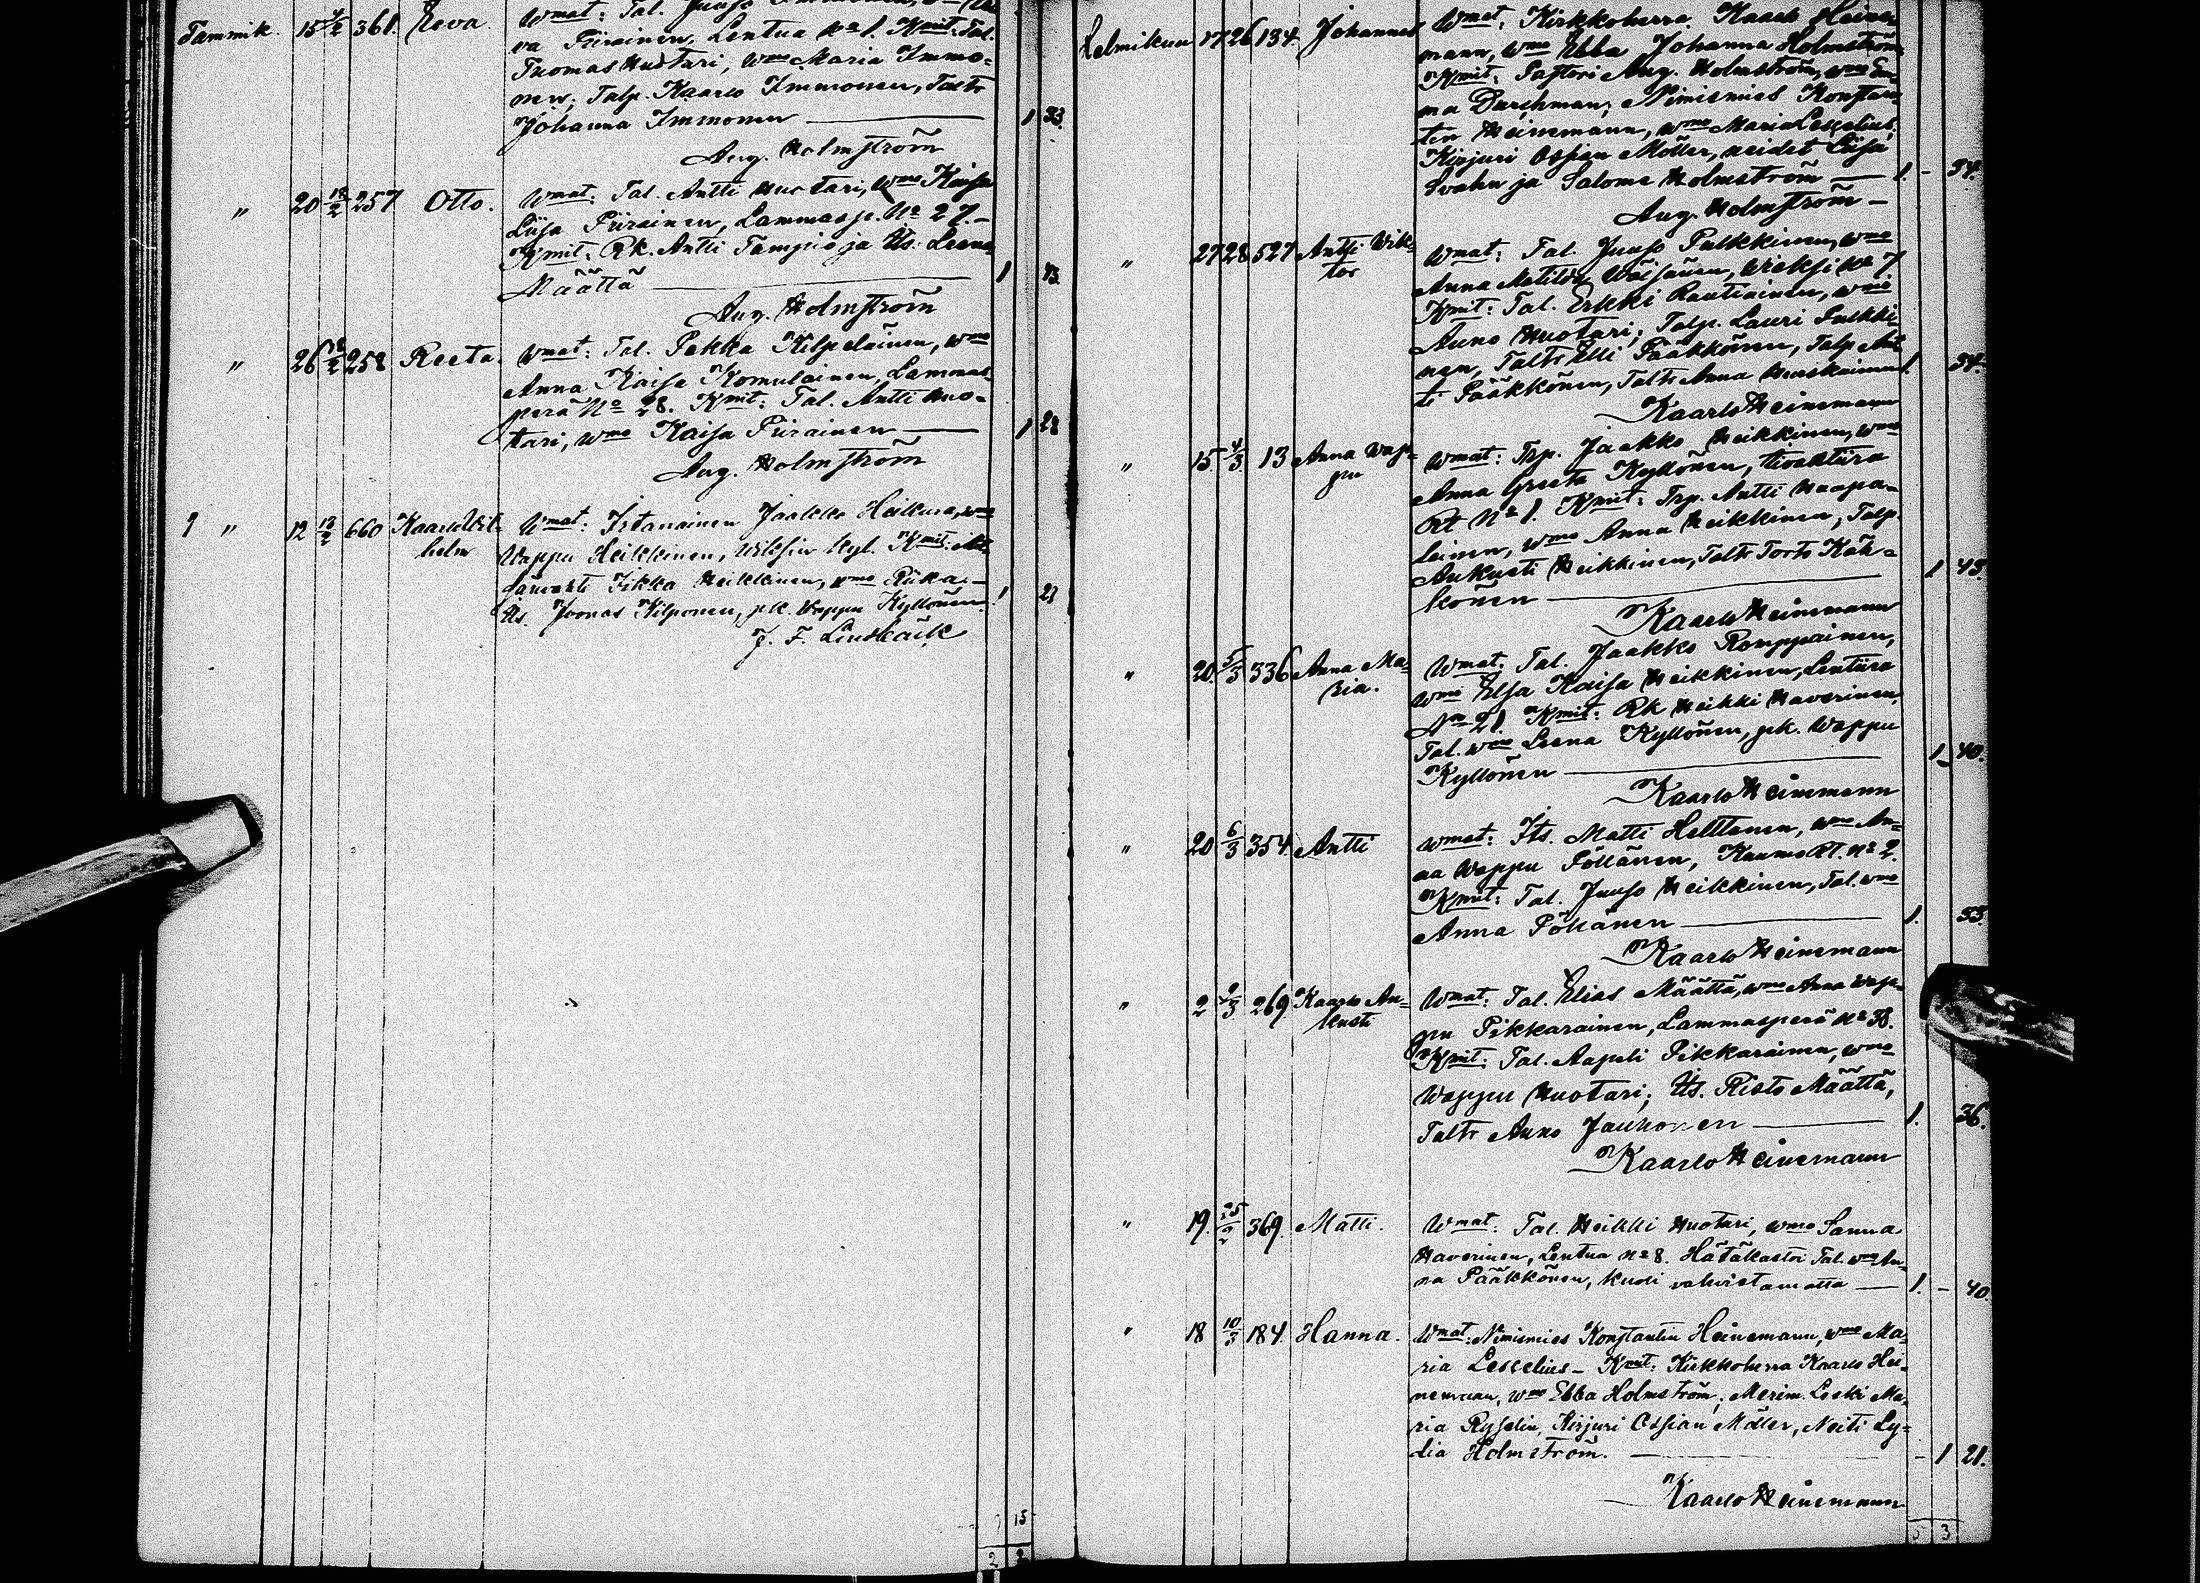 Tammik. 15 361. Eeva.
va Piirainen, Lentua No 1. Kmit: Tal.
Tuomas Huotari, wmo Maria Immo-
nen; Talp. Kaarlo Immonen, Taltr
Johanna Immonen — 1 33.
Aug. Holmström
" 20 257 Otto. Wmat: Tal. Antti Huotari, wmo Kaisa
Liisa Piirainen, Lammasp. No 27. –
Kmit: Rk. Antti Tampio ja Its. Leena
Määttä — 1
Aug. Holmström
" 26 258 Reeta. Wmat: Tal. Pekka Kilpeläinen, wmo
Anna Kaisa Komulainen, Lammas-
perä No 28. Kmit: Tal. Antti Huo-
tari, wmo Kaisa Piirainen — 1 28
Aug. Holmström
9 " 12 13/2 660 Kaarlo Wil-
helm
Wmat: Irtanainen Jaakko Heikura, wmo
Wappu Heikkinen, Kyl. Kmit:
Heikkinen, wmo Riika –
Its. Joonas Kilponen, pk. Wappu Kyllönen. 1 23
J. F. Lindbäck
2 2
Helmikuu 17 26 134. Johannes Wmat: Kirkkoherra Kaarlo Heine-
mann, wmo Ebba Johanna Holmström
Kmit: Pastori Aug. Holmström, wmo Em-
ma Durchman; Nimismies Konstan-
tin Heinemann, wmo Maria Lesselius;
Kirjuri Ossian Möller, neidet Liisa
Svahn ja Salome Holmström — 1. – 34.
Aug. Holmström –
" 27 28 527 Antti Wik-
tor
Wmat: Tal. Juuso Pulkkinen, wmo
Anna Matilda Wäisänen, Wieksi No 7
Kmit: Tal. Erkki Rautiainen, wmo
Auno Huotari; Talp. Lauri Pulkki-
nen, Taltr Elli Pääkkönen, Talp. Ant-
ti Pääkkönen, Taltr Anna 1. 34.
Kaarlo Heinemann
" 15. 4/3 13 Anna Wap-
pu
Wmat: Trp. Jaakko Heikkinen, wmo
Anna Greeta Kyllönen,
Rt. No 1. Kmit: Trp. Antti Haapa-
lainen, wmo Anna Heikkinen, Talp.
Aukusti Heikkinen, Taltr Käh-
könen — 1 43.
Kaarlo Heinemann
" 20. 5/3 336 Anna Ma-
ria.
Wmat: Tal. Jaakko Romppainen,
wmo Elsa Kaisa Heikkinen, Lentiira
No 21. Kmit: Rk Heikki Haverinen,
Tal. wmo Leena Kyllönen, pk. Wappu
Kyllönen — 1 40.
Kaarlo Heinemann
" 20 6/3 354. Antti Wmat: Its. Matti Helttonen, wmo An-
na Wappu Pöllänen, Kuumo Rt. No 2.
Kmit: Tal. Juuso Heikkinen, Tal. wmo
Anna — 1. 33.
Kaarlo Heinemann
" 2 9/3 269. Kaarlo Au-
kusti
Wmat: Tal. Elias Määttä, wmo Anna Wap-
pu Pikkarainen, Lammasperä No 38.
Kmit: Tal. Aapeli Pikkarainen, wmo
Wappu Huotari; Its. Risto Määttä,
Taltr Auno Jauhonen — 1. 36.
Kaarlo Heinemann
" 19. 25/2 369. Matti. Wmat: Tal. Heikki Huotari, wmo Sanna
Haverinen, Lentua No 8. Hätäkastoi Tal. wmo An-
na Pääkkönen, kuoli vahvistamatta — 1. – 40.
" 18 10/3 184. Hanna. Wmat: Nimismies Konstantin Heinemann, wmo Ma-
ria Lesselius – Kmit: Kirkkoherra Kaarlo Hei-
nemann, wmo Ebba Holmström; Merim. Leski Ma-
ria Kirjuri Ossian Möller, Neiti Ly-
dia Holmström. — – 1 21.
Kaarlo Heinemann
5 3